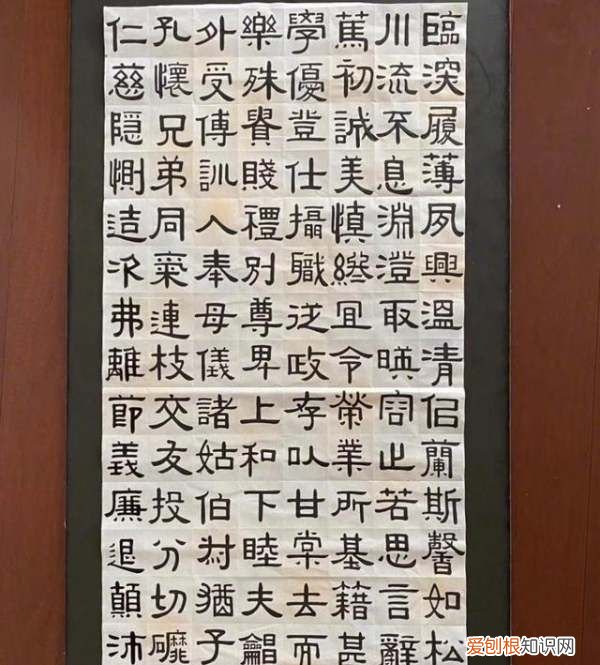 臨深履薄夙興溫清佀蘭斯馨如松
川流不息淵澄取暎容止若思言辭
篤初誠美慎終宜令榮業所基籍甚
學優登仕攝職從政存以甘棠去而
樂殊貴賤禮別尊卑上和下睦夫唱
外受傅訓入奉母儀諸姑伯叔猶子
孔懷兄弟同氣連枝交友投分切磨
仁慈隱惻造次弗離節義廉退顛沛
爱刨根知识网